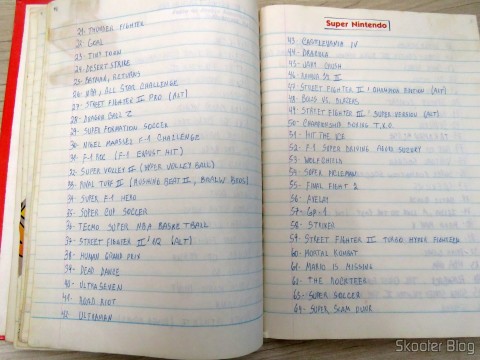 21- THUNDER FIGHTER
22- GOAL
23- TINY TOON
24- DESERT STRIKE
25- BATMAN RETURNS
26- NBA ALL STAR CHALLENGE
27- STREET FIGHTER II PRO (ALT)
28- DRAGON BALL Z
29- SUPER FORMATION SOCCER
30- NIGEL MANSELL F-1 CHALLENGE
31- F-1 ROC (F-1 EXHAUST HIT)
32- SUPER VOLLEY II (HYPER VOLLEY BALL)
33- RIVAL TURF II (RUSHING BEAT II, BRAWL BROS)
34- SUPER F-1 HERO
35- SUPER CUP SOCCER
36- TECMO SUPER NBA BASKETBALL
37- STREET FIGHTER II' (ALT)
38- HUMAN GRAND PRIX
39- DEAD DANCE
40- ULTRASEVEN
41- ROAD RIOT
42- ULTRAMAN
Super Nintendo
43- CASTLEVANIA IV
44- DRAKULA
45-
46- RANMA 1/2 II
47- STREET FIGHTER II' CHAMPION EDITION (ALT)
48- BULLS VS. BLAZERS
49- STREET FIGHTER III' SUPER VERSION (ALT)
50- CHAMPIONSHIP BOXING T.K.O.
51- HIT THE ICE
52- F-1 SUPER DRIVING AGURI SUZUKY
53- WOLFCHILD
54- SUPER
55- FINAL FIGHT 2
56- AXELAY
57- GP-1
58- STRIKER
59- STREET FIGHTER II TURBO HYPER FIGHTING
60- MORTAL KOMBAT
61- MARIO IS MISSING
62- THE ROCKETEER
63- SUPER SOCCER
64- SUPER SLAM DUNK
Skooter Blog